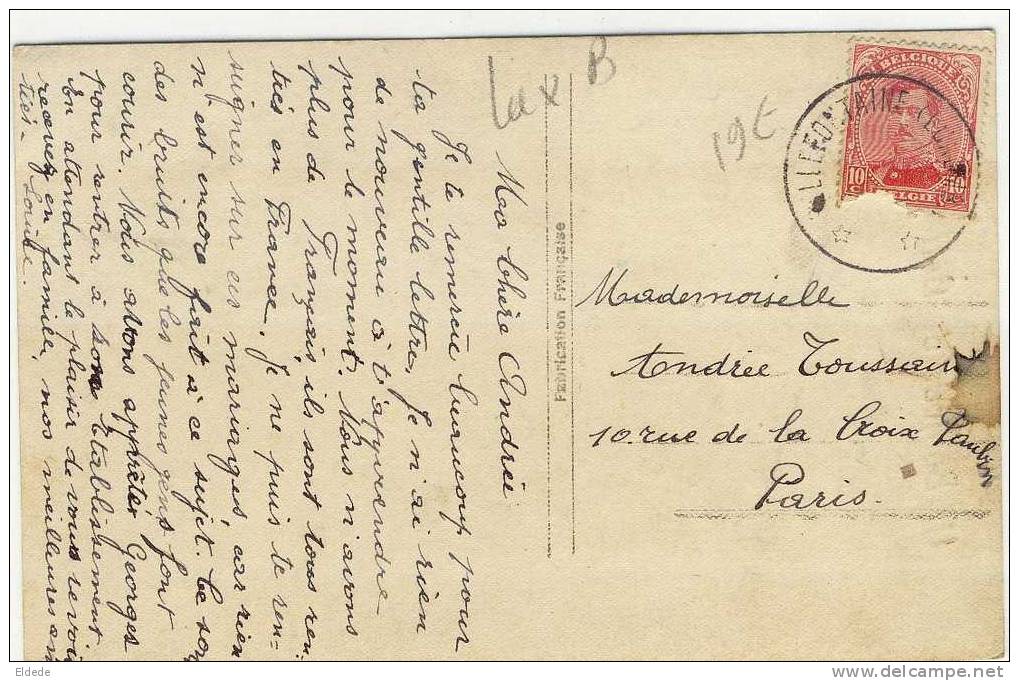 Ma chère Andrée
Je te remercie beaucoup pour
ta gentille lettre, Je n'ai rien
de nouveau à t'apprendre
pour le moment. Nous n'avons
plus de Français, ils sont tous ren-
trés en France. Je ne puis te ren-
suigner sur ces mariages, car rien
n'est encore fait à ce sujet. Ce son
des bruits que les jeunes gens font
courir. Nous avons apprêter Georges
pour rentrer à son Etablissement
En attendant le plaisir de vous revoir
recevez en famille, nos meilleures am
tiés- Louise.
Fabrication Française
tax B
19t
BELGIQUE
10 C
10 C
BELGIE
Mademoiselle
Andrée Toussain
10 rue de la Croix Faubin
Paris.
Eldede
www.delcampe.net